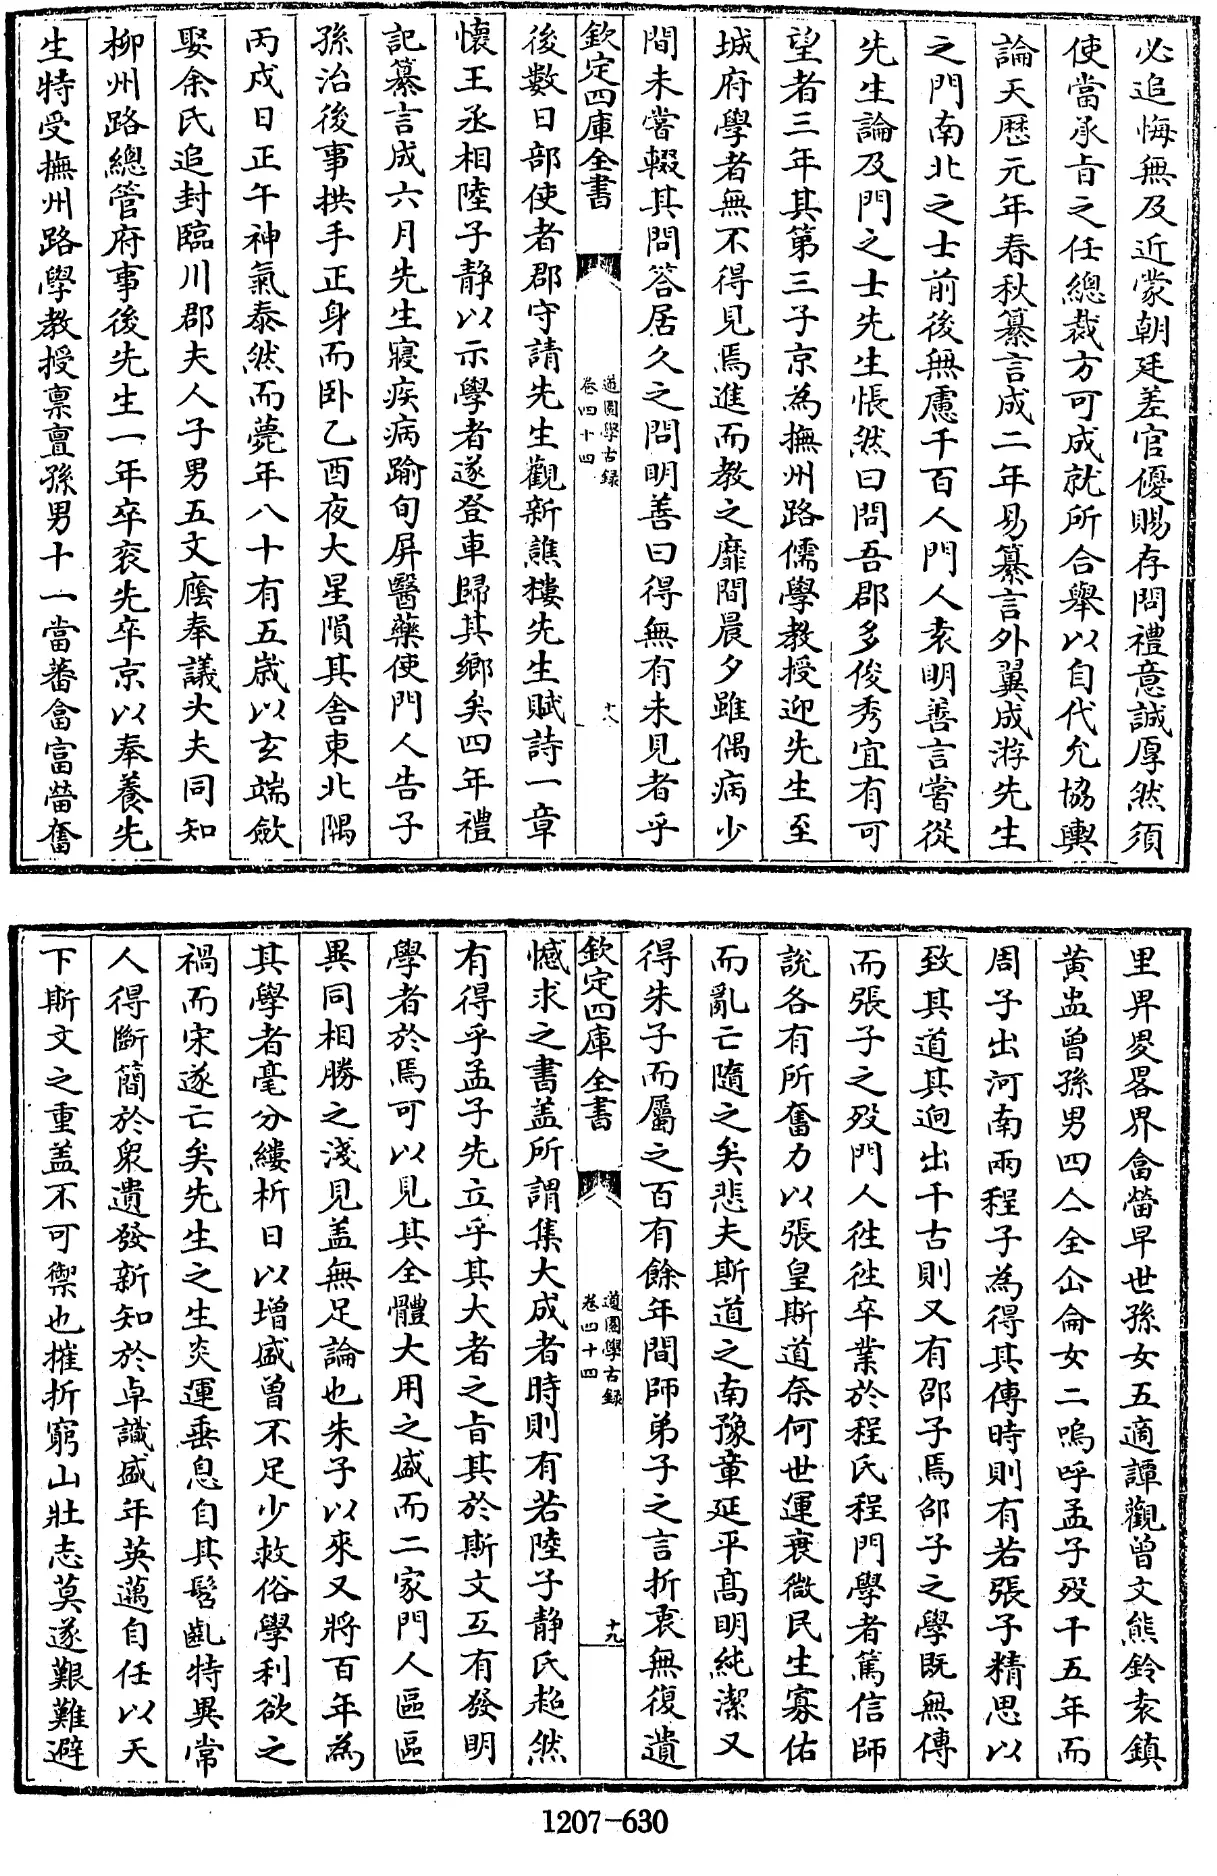 必追悔無及近蒙朝廷差官優賜存問禮意誠厚然須
使當承旨之任總裁方可成就所合舉以自代允協輿
論天歷元年春秋纂言成二年易纂言外翼成游先生
之門南北之士前後無慮千百人門人袁明善言嘗從
先生論及門之士先生悵然曰問吾郡多俊秀宜有可
望者三年其第三子京為撫州路儒學教授迎先生至
城府學者無不得見焉進而教之靡間晨夕雖偶病少
間未嘗輟其問答居久之問明善曰得無有未見者乎
欽定四庫全書
道園學古録
卷四十四
十八
後數日部使者郡守請先生觀新譙樓先生賦詩一章
懷王丞相陸子靜以示學者遂登車歸其鄉矣四年禮
記纂言成六月先生寢疾病踰旬屏醫藥使門人告子
孫治後事拱手正身而卧乙酉夜大星隕其舍東北隅
丙戌日正午神氣泰然而薨年八十有五嵗以玄端歛
娶余氏追封臨川郡夫人子男五文廕奉議大夫同知
柳州路總管府事後先生一年卒衮先卒京以奉養先
生特受撫州路學教授稟亶孫男十一當蕃畬富嵤奮
里畀畟畧界畬嵤早世孫女五適譚觀曾文熊鈴袁鎮
黃盅曾孫男四亼全仚侖女二嗚呼孟子歿千五年而
周子出河南兩程子為得其傳時則有若張子精思以
致其道其逈出千古則又有邵子焉邵子之學既無傳
而張子之歿門人徃徃卒業於程氏程門學者篤信師
說各有所奮力以張皇斯道奈何世運衰微民生寡佑
而亂亡隨之矣悲夫斯道之南豫章延平髙明純潔又
得朱子而屬之百有餘年間師弟子之言折衷無復遺
欽定四庫全書
道園學古録
卷四十四
十九
憾求之書盖所謂集大成者時則有若陸子靜氏超然
有得乎孟子先立乎其大者之旨其於斯文互有發明
學者於焉可以見其全體大用之盛而二家門人區區
異同相勝之淺見盖無足論也朱子以來又將百年為
其學者毫分縷析日以增盛曾不足少救俗學利欲之
禍而宋遂亡矣先生之生炎運垂息自其髫齓特異常
人得斷簡於衆遺發新知於卓識盛年英邁自任以天
下斯文之重盖不可禦也摧折窮山壯志莫遂艱難避
1207-630